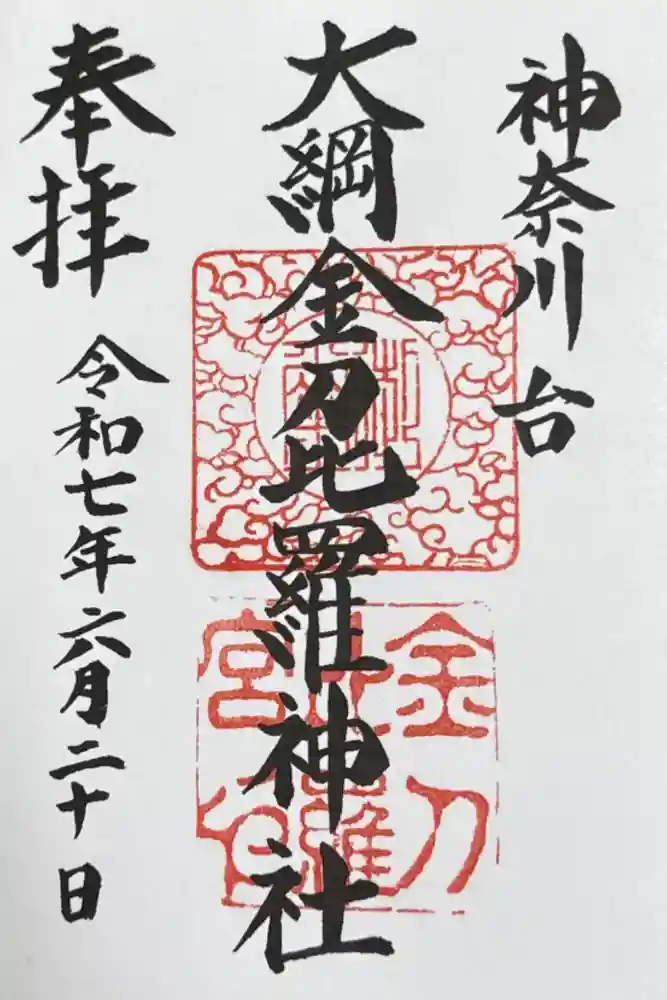 神奈川台
大綱金刀比羅神社
奉拝
令和七年六月二十日
金刀
比羅
宮印